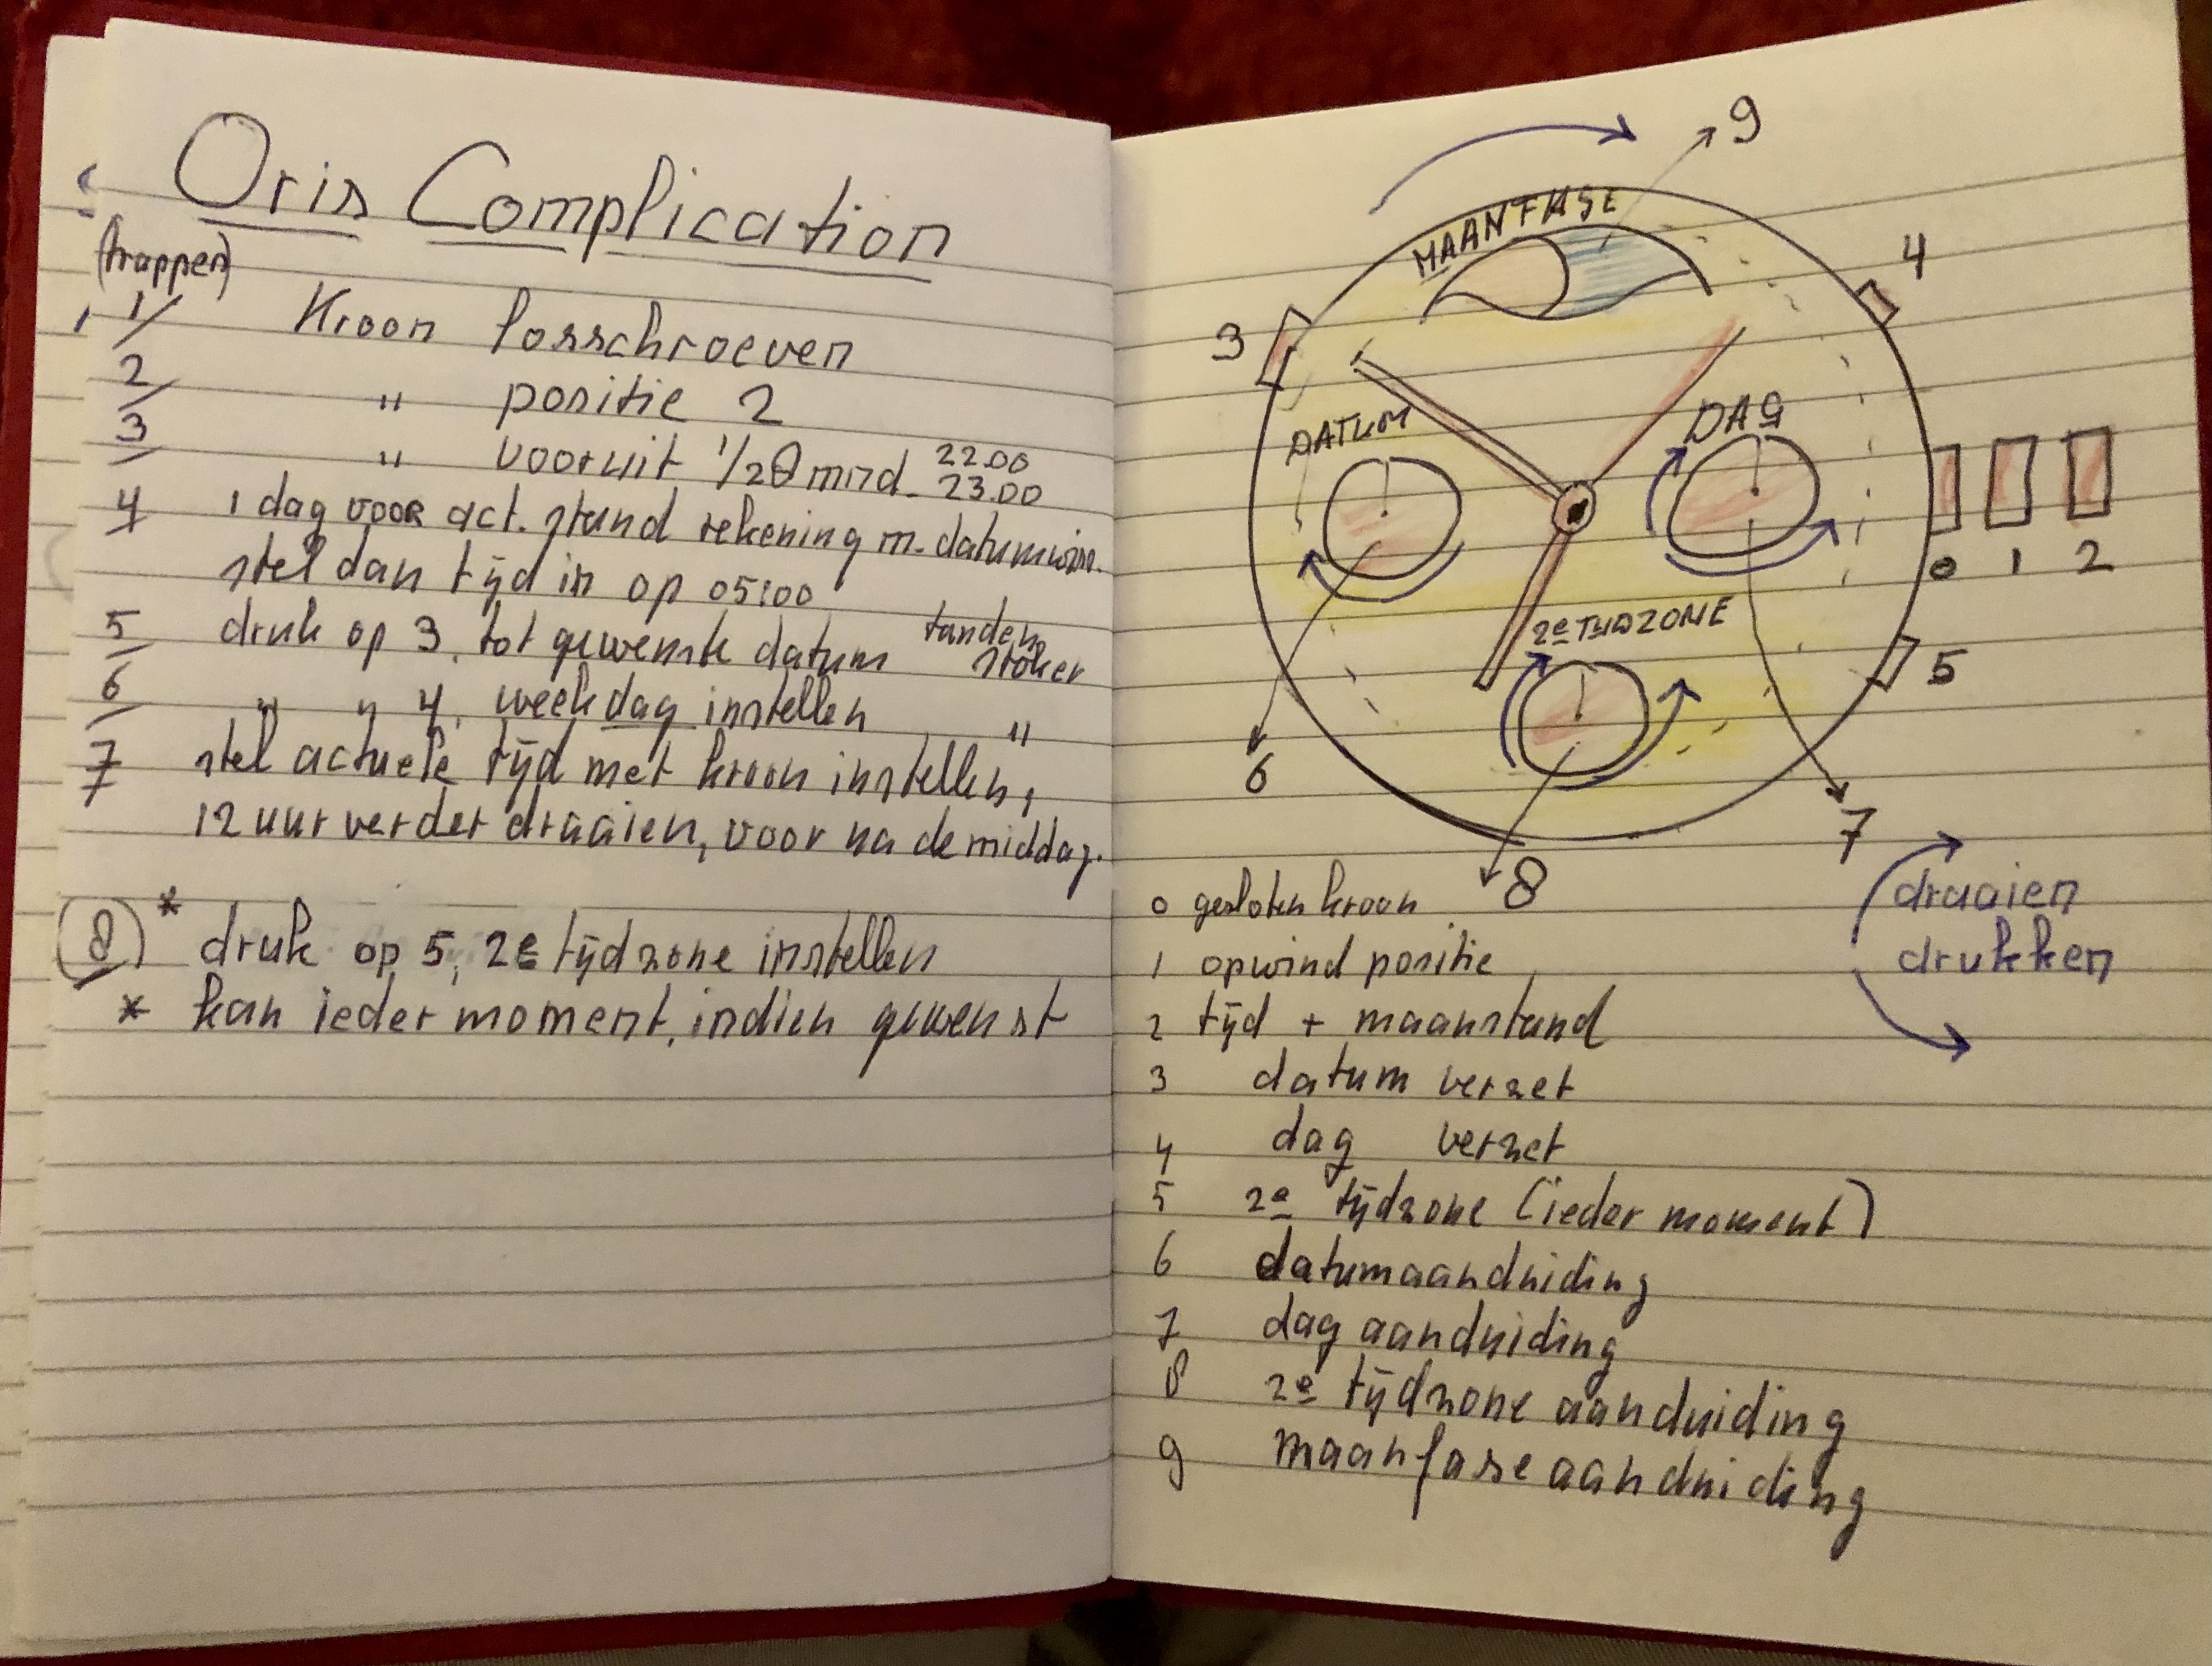 Oris Complication
(trappen)
1/ Kroon losschroeven
2/ " positie 2
3/ " vooruit 1/2 mnd. 22.00
23.00
4 1 dag voor act. stand rekening m. datumwin.
stel dan tijd in op 05:00
5 druk op 3. tot gewenste datum tanden
stoker
6 " " 4. weekdag instellen "
7 stel actuele tijd met kroon instellen,
12 uur verder draaien, voor na de middag.
8 * druk op 5, 2e tijdzone instellen
* kan ieder moment, indien gewenst
9
MAANFASE
4
3
DATUM
DAG
0 1 2
2e TIJDZONE
5
6
7
8
draaien
drukken
0 gesloten kroon
1 opwind positie
2 tijd + maanstand
3 datum verzet
4 dag verzet
5 2e tijdzone (ieder moment)
6 datumaanduiding
7 dag aanduiding
8 2e tijdzone aanduiding
9 maanfase aanduiding